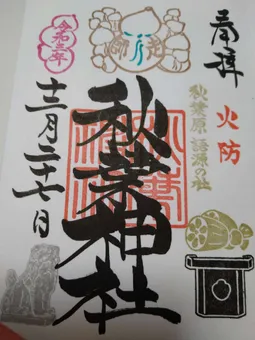 奉拝
火防
秋葉原 語源の社
秋葉神社
令和三年
十二月二十七日